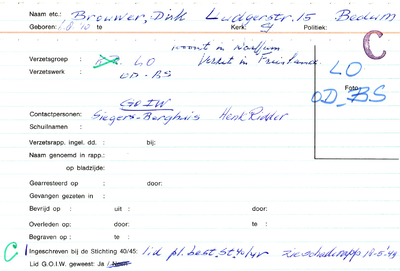 Naam etc.: Brouwer, Dirk Ludgerstr. 15 Bedum
Geboren: 1-8-'10 te Kerk: Politiek:
woont in Warffum
Verzetsgroep : LO Verzet in Friesland
Verzetswerk : OD-BS
C
LO
Foto
OD-BS
GOIW
Contactpersonen: Siegers-Berghuis Henk Ridder
Schuilnamen :
Verzetsrapp. ingel. dd. : bij:
Naam genoemd in rapp.:
op bladzijde:
Gearresteerd op : door:
Gevangen gezeten in :
Bevrijd op : uit : door:
Overleden op: door: te :
Begraven op : te :
C Ingeschreven bij de Stichting 40/45: lid pl. best. St. 40/45 zie schade rapp 18-5-'49
Lid G.O.I.W. geweest: Ja / Neen